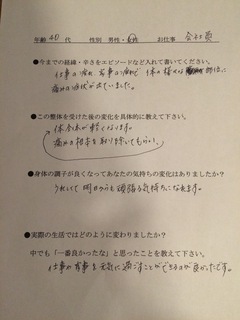 年齢 40 代 性別 男性・女性 お仕事 会社員
●今までの経緯・辛さをエピソードなど入れて書いてください。
仕事の疲れ、家事の疲れで体の様々な部位に
痛みの症状が出ていました。
●この整体を受けた後の変化を具体的に教えて下さい。
体全体が軽くなります。
痛みの根本を取り除いてもらい、
●身体の調子が良くなってあなたの気持ちの変化はありましたか?
うれしくて明日からも頑張る気持ちになれます。
●実際の生活ではどのように変わりましたか?
中でも「一番良かったな」と思ったことを教えて下さい。
仕事や家事を元気に過ごすことができるのが良かったです。